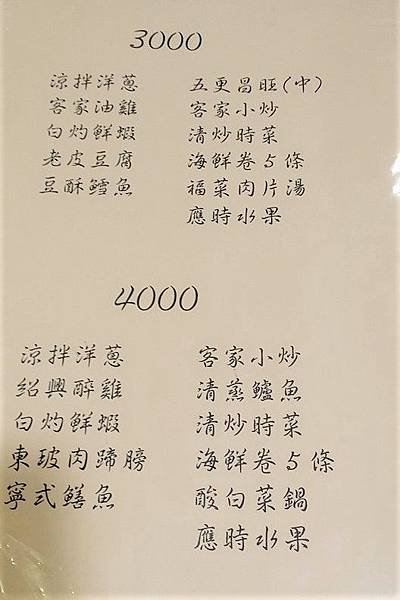 3000
涼拌洋蔥
客家油雞
白灼鮮蝦
老皮豆腐
豆酥鱈魚
五更昌旺(中)
客家小炒
清炒時菜
海鮮卷5條
福菜肉片湯
應時水果
4000
涼拌洋蔥
紹興醉雞
白灼鮮蝦
東玻肉蹄膀
寧式鱔魚
客家小炒
清蒸鱸魚
清炒時菜
海鮮卷5條
酸白菜鍋
應時水果